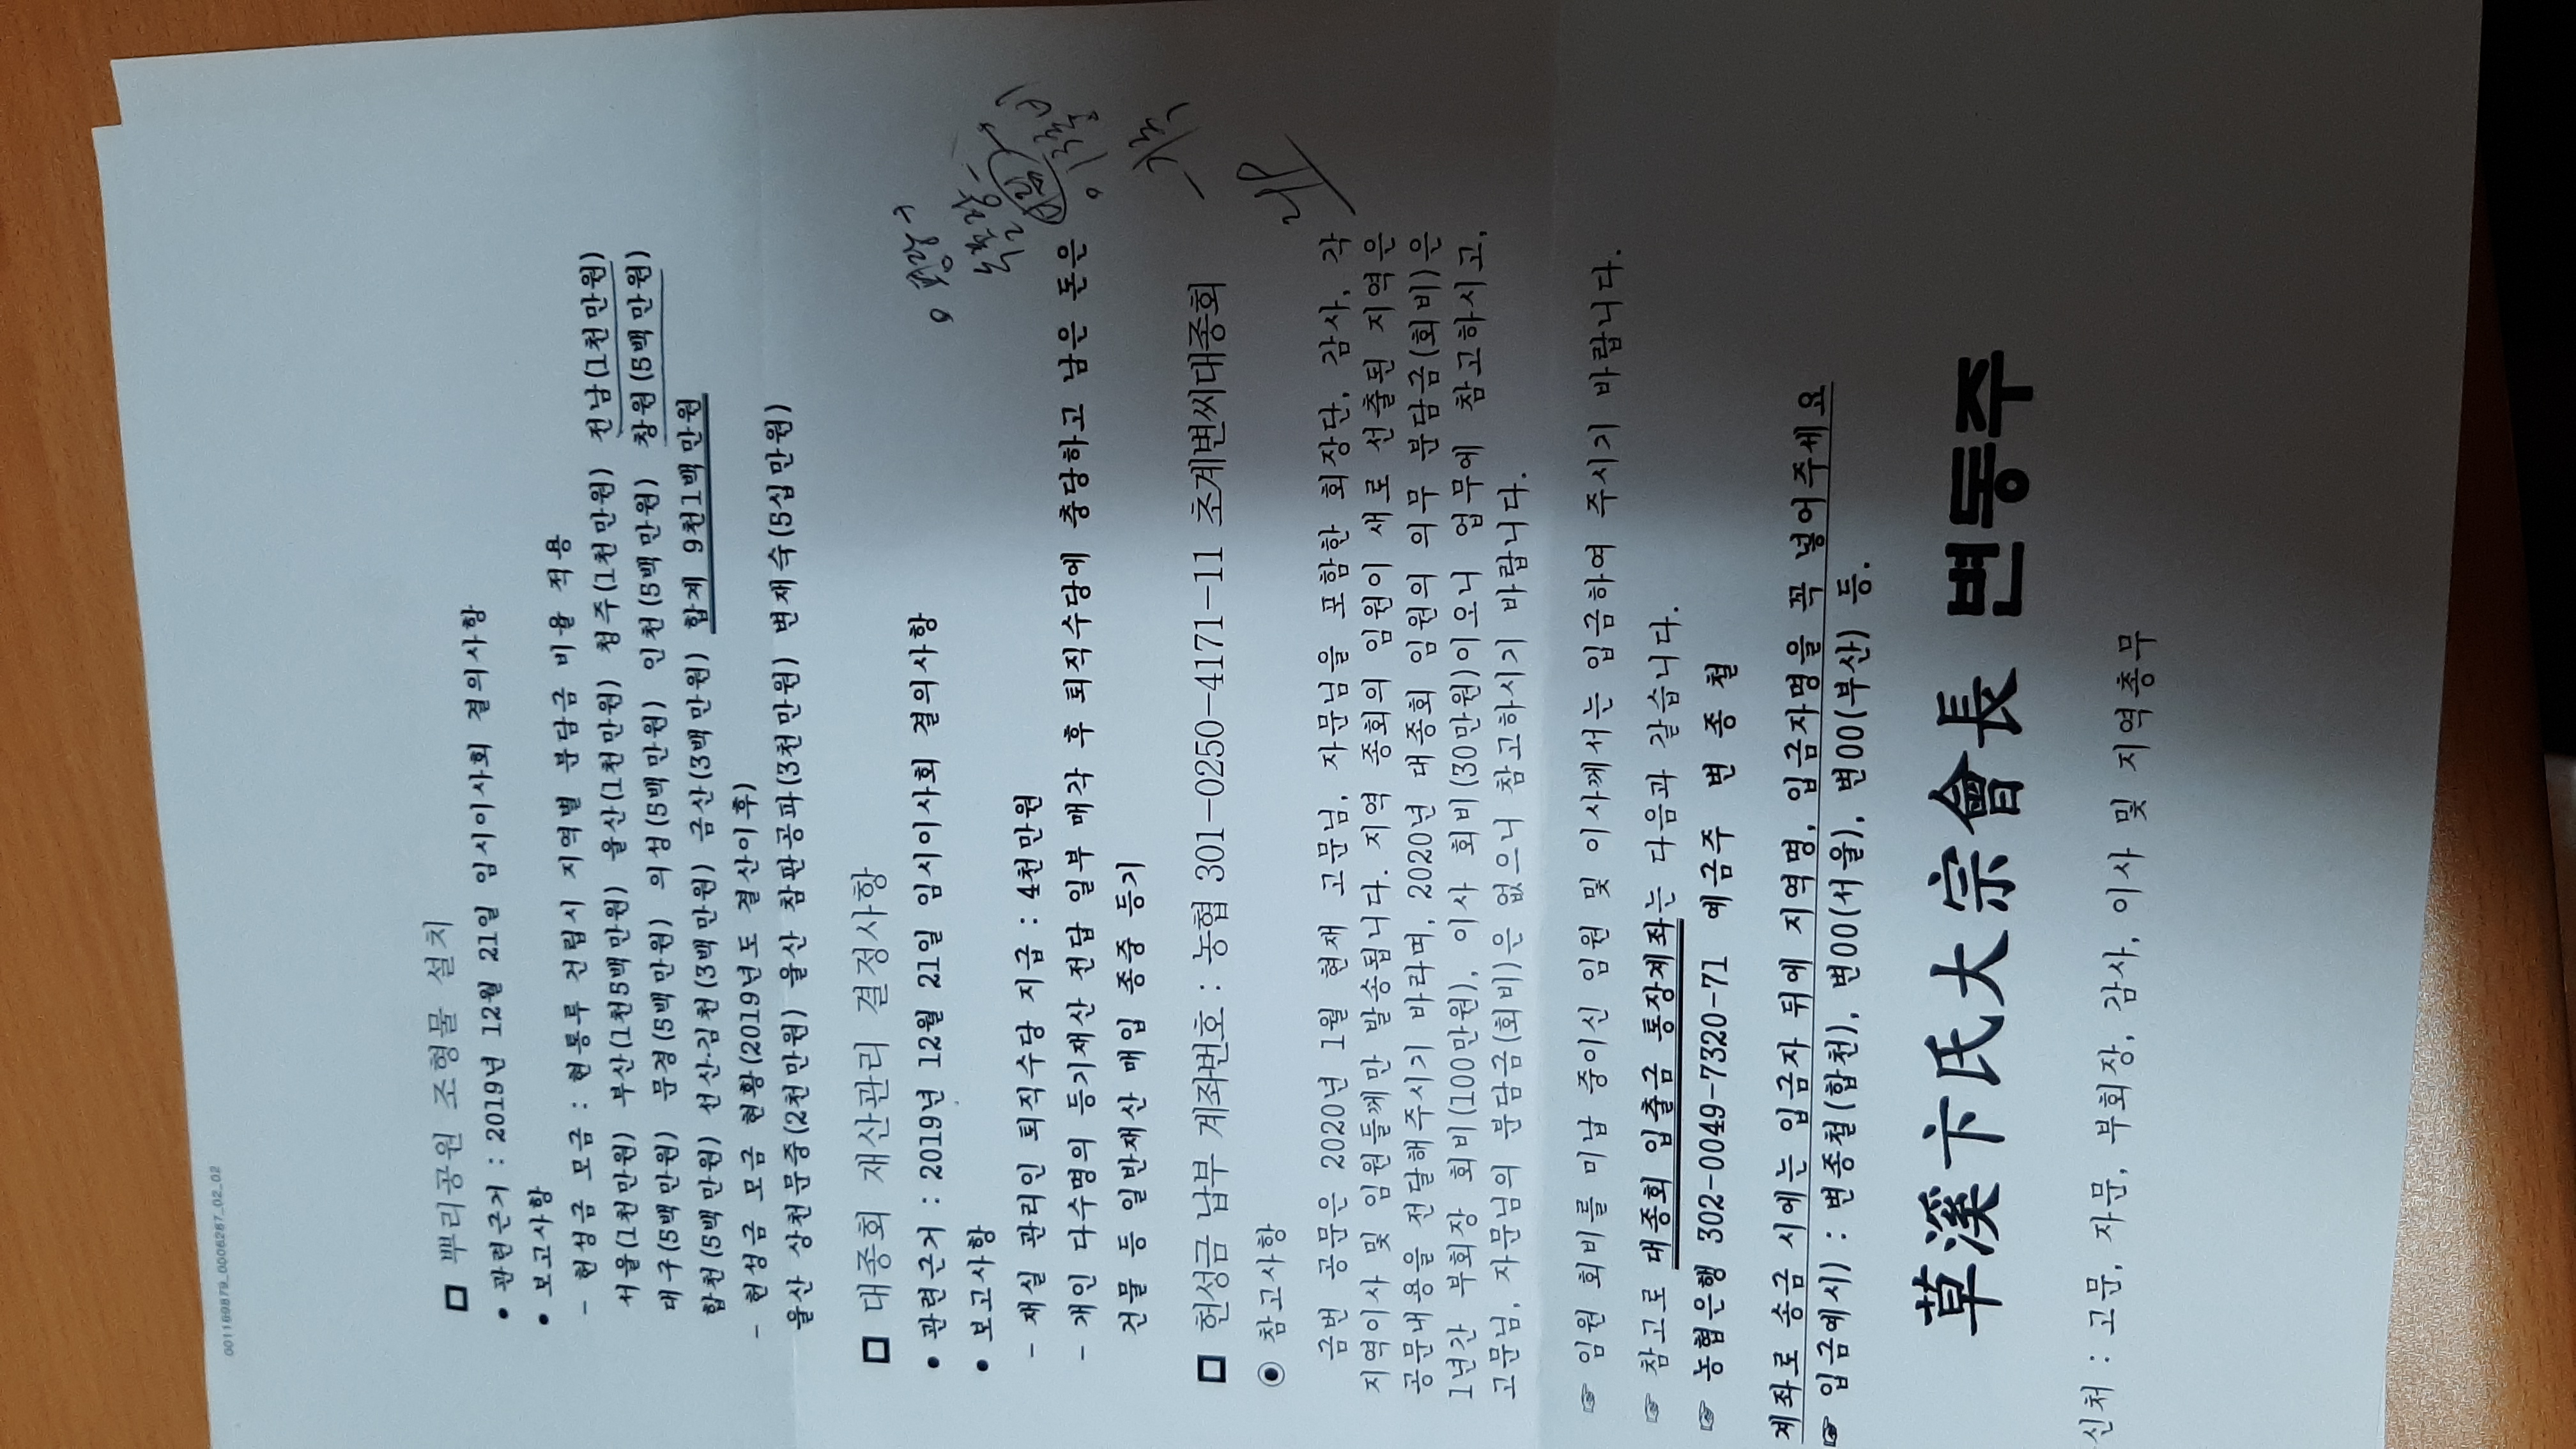 0011698879_0006287_02_02
□ 뿌리공원 조형물 설치
• 관련근거 : 2019년 12월 21일 임시이사회 결의사항
• 보고사항
- 헌성금 모금 : 현룡루 건립시 지역별 분담금 비율 적용
서울(1천만원) 부산(1천5백만원) 울산(1천만원) 청주(1천만원) 전남(1천만원)
대구(5백만원) 문경(5백만원) 의성(5백만원) 인천(5백만원) 창원(5백만원)
합천(5백만원) 선산·김천(3백만원) 금산(3백만원) 합계 9천1백만원
- 헌성금 모금 현황(2019년도 결산이후)
울산 상천문중(2천만원) 울산 참판공파(3천만원) 변재숙(5십만원)
□ 대종회 재산관리 결정사항
• 관련근거 : 2019년 12월 21일 임시이사회 결의사항
• 보고사항
- 재실 관리인 퇴직수당 지급 : 4천만원
- 개인 다수명의 등기재산 전답 일부 매각 후 퇴직수당에 충당하고 남은 돈은
건물 등 일반재산 매입 종중 등기
□ 헌성금 납부 계좌번호 : 농협 301-0250-4171-11 초계변씨대종회
◉ 참고사항
금번 공문은 2020년 1월 현재 고문님, 자문님을 포함한 회장단, 감사, 각
지역이사 및 임원들께만 발송됩니다. 지역 종회의 임원이 새로 선출된 지역은
공문내용을 전달해주시기 바라며, 2020년 대종회 임원의 의무 분담금(회비)은
1년간 부회장 회비(100만원), 이사 회비(30만원)이오니 업무에 참고하시고,
고문님, 자문님의 분담금(회비)은 없으니 참고하시기 바랍니다.
☞ 임원 회비를 미납 중이신 임원 및 이사께서는 입금하여 주시기 바랍니다.
☞ 참고로 대종회 입출금 통장계좌는 다음과 같습니다.
☞ 농협은행 302-0049-7320-71 예금주 변 종 철
계좌로 송금 시에는 입금자 뒤에 지역명, 입금자명을 꼭 넣어주세요
☞ 입금예시) : 변종철(합천), 변00(서울), 변00(부산) 등.
草溪卞氏大宗會長 변통주
신처 : 고문, 자문, 부회장, 감사, 이사 및 지역총무